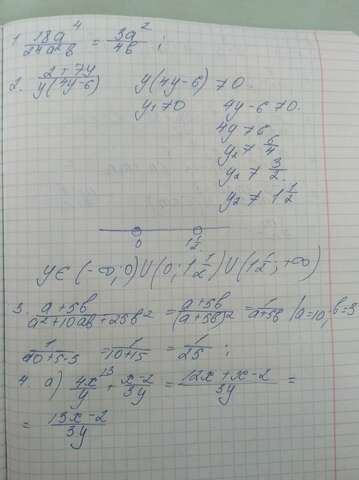 1. 18a⁴/24a²b = 3a²/4b ;
2. 2+7y/y(4y-6) y(4y-6) ≠ 0.
y₁ ≠ 0 4y-6 ≠ 0.
4y ≠ 6
y₂ ≠ 6/4
y₂ ≠ 3/2
y₂ ≠ 1 1/2
0 1 1/2
y ∈ (-∞; 0) U (0; 1 1/2) U (1 1/2; +∞)
3. a+5b/a²+10ab+25b² = a+5b/(a+5b)² = 1/a+5b / a=10, b=3
1/10+5·3 = 1/10+15 = 1/25 ;
4. a) 4x/y ⁽³ + x-2/3y = 12x+x-2/3y =
= 13x-2/3y